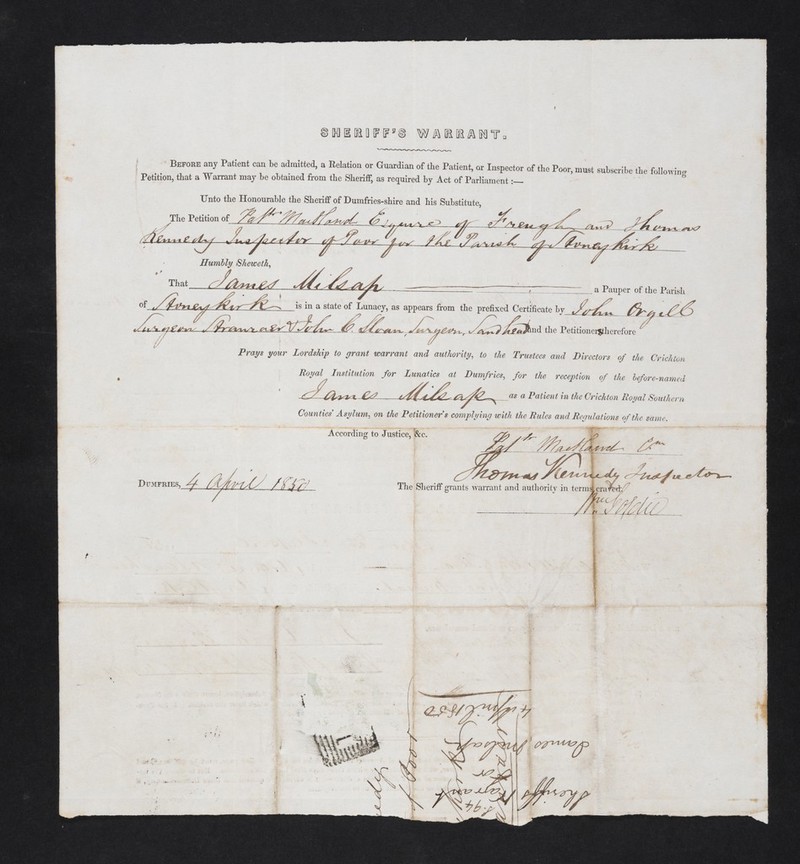 SHERIFF'S WARRANT.
BEFORE any Patient can be admitted, a Relation or Guardian of the Patient, or Inspector of the Poor, must subscribe the following
Petition, that a Warrant may be obtained from the Sheriff, as required by Act of Parliament :—
Unto the Honourable the Sheriff of Dumfries-shire and his Substitute,
The Petition of Patk Maitland Esquire of Freugh and Thomas
Kennedy Inspector of Poor for the Parish of Stoneykirk
Humbly Sheweth,
That James Milsap a Pauper of the Parish
of Stoneykirk is in a state of Lunacy, as appears from the prefixed Certificate by John Orgill
Surgeon Stranraer & John C. Sloan, Surgeon, Sandhead and the Petitioners therefore
Prays your Lordship to grant warrant and authority, to the Trustees and Directors of the Crichton
Royal Institution for Lunatics at Dumfries, for the reception of the before-named
James Milsap as a Patient in the Crichton Royal Southern
Counties' Asylum, on the Petitioner's complying with the Rules and Regulations of the same.
According to Justice, &c.
Patk Maitland
Thomas Kennedy Inspector
DUMFRIES, 4 April 1850 The Sheriff grants warrant and authority in terms craved.
Wm Goldie
Sheriffs Warrant
for
James Milsap
4 April 1850
edy
f Poor